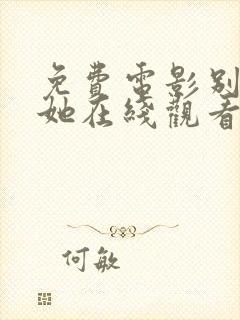 免費電影別
她在綫觀看
何敏